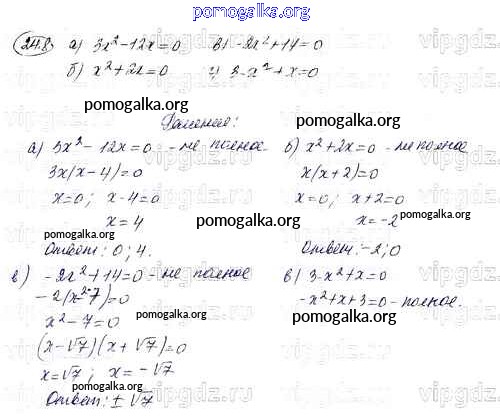 pomogalka.org
24.8 а) 3x² - 12x = 0 в) -2x² + 14 = 0
б) x² + 2x = 0 г) 3 - x² + x = 0
pomogalka.org pomogalka.org
Решение:
а) 3x² - 12x = 0 - не полное б) x² + 2x = 0 - не полное
3x(x - 4) = 0 x(x + 2) = 0
x = 0; x - 4 = 0 x = 0; x + 2 = 0
x = 4 x = -2
pomogalka.org pomogalka.org
Ответ: 0; 4. Ответ: -2; 0
в) -2x² + 14 = 0 - не полное в) 3 - x² + x = 0
-2(x² - 7) = 0 -x² + x + 3 = 0 - полное.
pomogalka.org pomogalka.org
x² - 7 = 0
(x - √7)(x + √7) = 0
x = √7; x = -√7
pomogalka.org pomogalka.org
Ответ: ± √7
vipgdz.ru